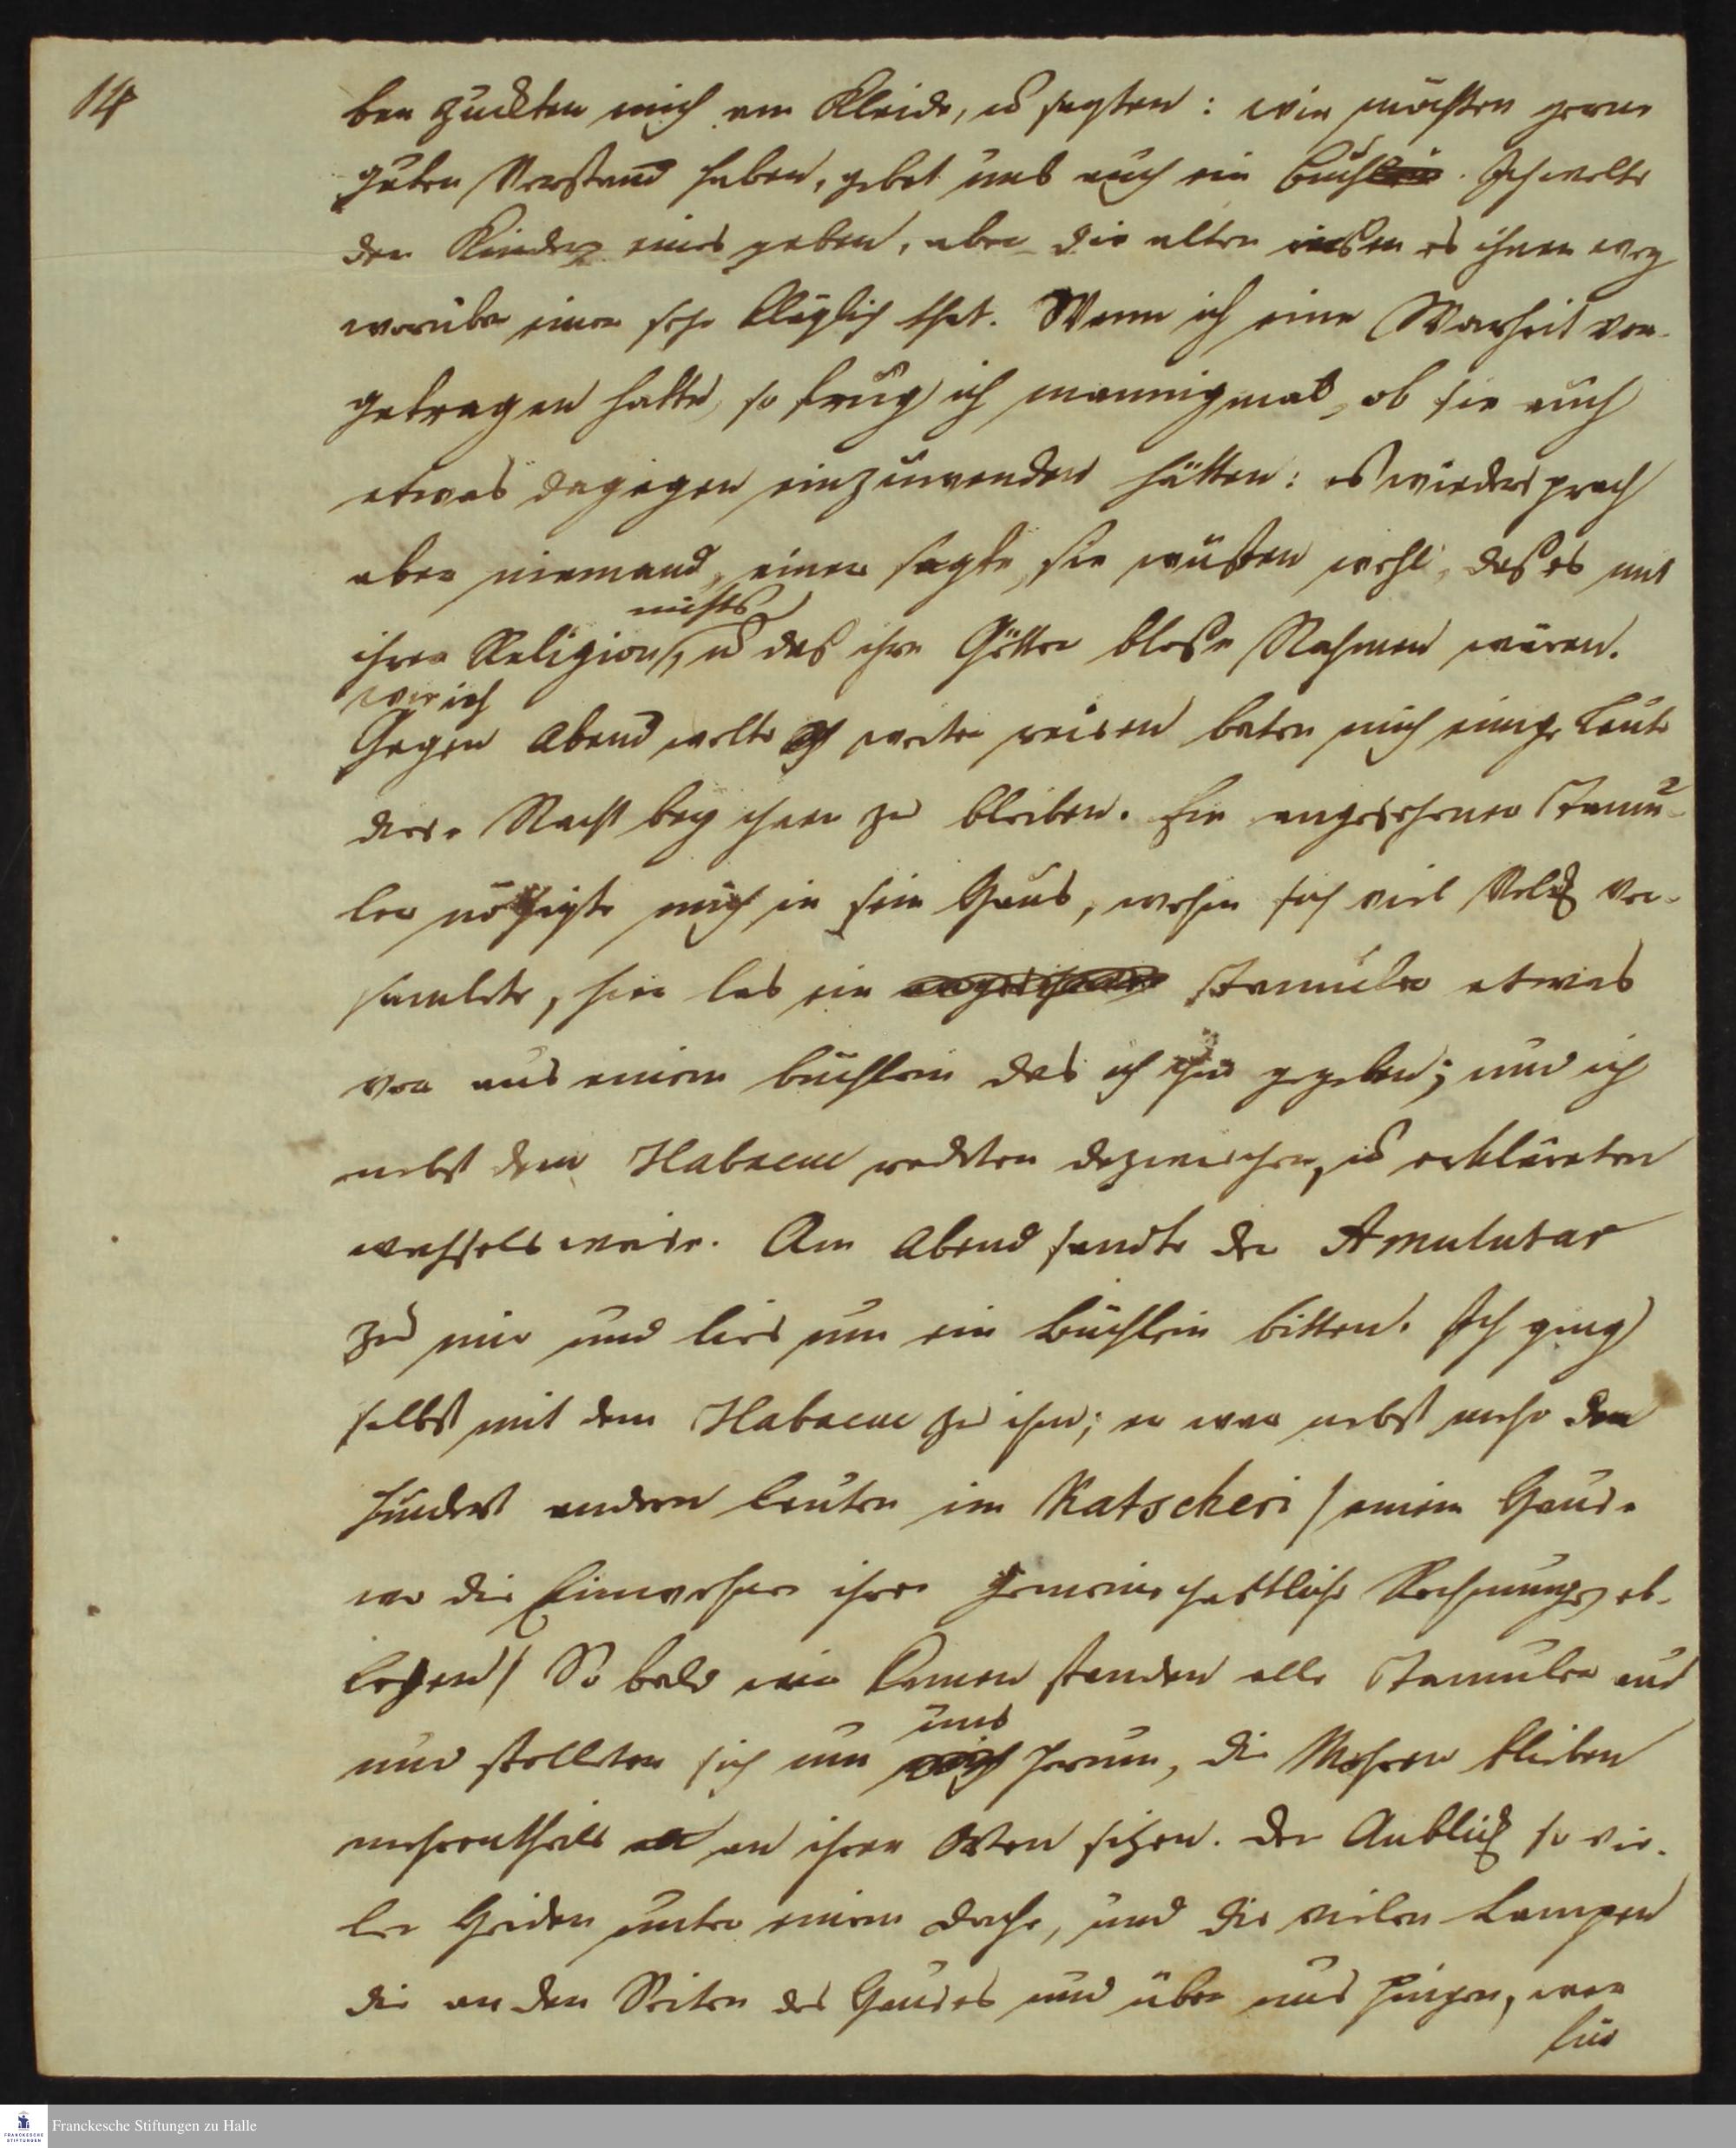 14
ben zuckten mich am Kleide, u sagten: wir möchten gerne
guten Verstand haben, gebet uns auch ein Buch. Ich wolte
den Kindern eines geben, aber die alten rissen es ihnen weg
worüber einer sehr kläglich that. Wenn ich eine Warheit vor-
getragen hatte, so frug ich mannigmal, ob sie auch
etwas dagegen einzuwenden hätten: es wiedersprach
aber niemand, einer sagte, sie wüsten wohl, daß es mit
nichts
ihrer Religion, u daß ihre Götter blose Nahmen wären.
wie ich
Gegen Abend wolte weiter reisen baten mich einige Leute
diese Nacht bey ihnen zu bleiben. Ein angesehener Tamu-
ler nöthigte mich in sein Haus, wohin sich viel Volck ver-
samlete, hier las ein Tamuler etwas
vor aus einem büchlein das ich ihm gegeben; und ich
nebst dem Habacuc redeten dazwischen, u erkläreten
wechselsweise. Am Abend sandte der Amulutar
zu mir und lies um ein Büchlein bitten. Ich ging
selbst mit dem Habacuc zu ihm; er war nebst mehr den
hundert andern Leuten im Katscheri / einem Hause
wo die Einwohner ihre gemeinschaftliche Rechnungen ab-
legen / So bald wir kamen standen alle Tamuler auf
uns
und stelleten sich um herum, die Mohren blieben
mehrentheils an ihren Orten sizen. Der Anblick so vie-
ler Heiden unter einem Dache, und die vielen Lampen
die an den Seiten des Hauses und über uns hingen, war
für
Franckesche Stiftungen zu Halle
FRANCKESCHE
STIFTUNGEN